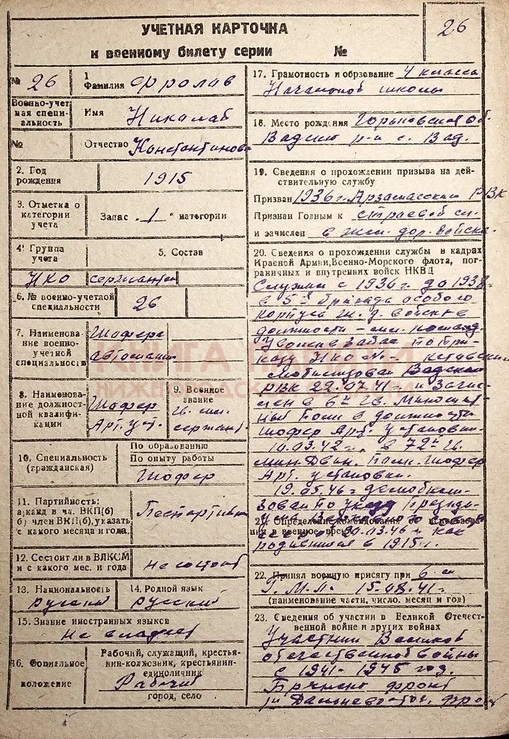 УЧЕТНАЯ КАРТОЧКА
26
к военному билету серии №
№ 26
Военно-учетная специальность
№
1
Фамилия Фролов
Имя Николай
Отчество Константинов
2. Год рождения 1915
3. Отметка о категории учета
Запас „1“ категории
4. Группа учета
5. Состав
НКО сержантск
6. № военно-учетной специальности 26
7. Наименование военно-учетной специальности
Шофера
автомашин
8. Наименование должностной квалификации
Шофер
Арт. уст.
9. Военное звание
сержант
10. Специальность (гражданская)
По образованию
По опыту работы
Шофер
11. Партийность:
канд в чл. ВКП(б)
б) член ВКП(б), указать с какого месяца и года.
12. Состоит ли в ВЛКСМ и с какого мес. и года
не состоит
13. Национальность
русский
14. Родной язык
русский
15. Знание иностранных языков
не владеет
16. Социальное положение
Рабочий, служащий, крестьянин-колхозник, крестьянин-единоличник
Рабочий
город, село
17. Грамотность и образование 4 класса
Начальной школы
18. Место рождения Горьковская об
Вадский р-н с. Вад.
19. Сведения о прохождении призыва на действительную службу
Призван 1936 г. Арзамасский РВК
Признан Годным к строевой
и зачислен в жел. дор. войска
20. Сведения о прохождении службы в кадрах
Красной Армии, Военно-Морского флота, пограничных и внутренних войск НКВД
Служил с 1936 г до 1938
в 5й бригада особого
корпуса ж. д. войске
должности
Мобилизован Вадским
РВК 22.07.41 г и зачис
лен в 6й Миномет
ный полк в должности
шофер Арт. установк.
10.03.42 в 72й
Мин. полк шофер
Арт. установки
19.05.46 г демобилизован по указу Президиу
как
родившегося в 1915 г.
22. Принял военную присягу при 6
15.08.41 г.
(наименование части, число. месяц и год)
23. Сведения об участии в Великой Отечественной войне и других войнах
Участник Великой
отечественной войны
с 1941-1945 год.
Брянский фронт
и Дальневосточ. фро
КНИГА ПАМЯТИ